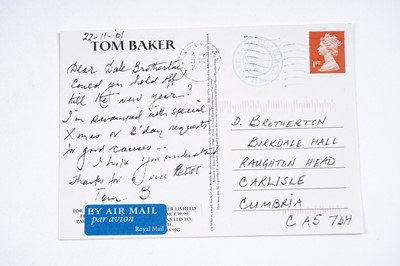 22-11-'01
TOM BAKER
Dear Dale Brotherton,
Could you hold off
till the new year?
I'm swamped with special
Xmas or B'day requests
for good causes --
I hope you understand
Thanks for nice letter
Tom B
BY AIR MAIL
par avion
Royal Mail
1ST
D. BROTHERTON
BIRKDALE HALL
RAUGHTON HEAD
CARLISLE
CUMBRIA
CA5 7DH